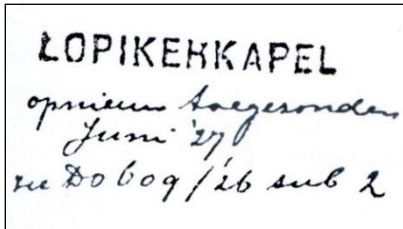 LOPIKERKAPEL
opnieuw toegezonden
Juni '27
zie Do 609/'26 sub 2